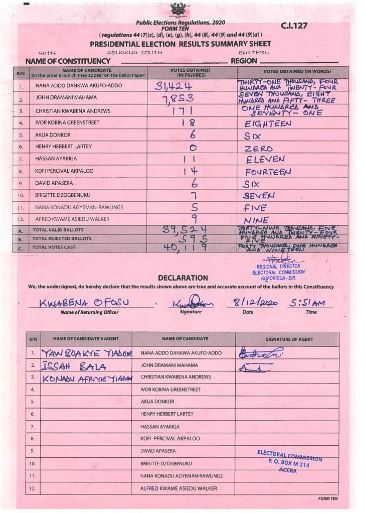 Public Elections Regulations, 2020
FORM TEN
C.I.127
(regulations 44(7)(c), (d), (e), (g), (h), 44 (8), 44 (9) and 44 (9)(d) )
PRESIDENTIAL ELECTION RESULTS SUMMARY SHEET
SOUTH EASTERN
NAME OF CONSTITUENCY REGION
S/N NAME OF CANDIDATE VOTES OBTAINED VOTES OBTAINED (IN WORDS)
(In the order in which they appear on the Ballot Paper) (IN FIGURES)
1. NANA ADDO DANKWA AKUFO-ADDO 31,424 THIRTY-ONE THOUSAND, FOUR HUNDRED AND TWENTY-FOUR
2. JOHN DRAMANI MAHAMA 7,853 SEVEN THOUSAND, EIGHT HUNDRED AND FIFTY-THREE
3. CHRISTIAN KWABENA ANDREWS 171 ONE HUNDRED AND SEVENTY-ONE
4. IVOR KOBINA GREENSTREET 18 EIGHTEEN
5. AKUA DONKOR 6 SIX
6. HENRY HERBERT LARTEY 0 ZERO
7. HASSAN AYARIGA 11 ELEVEN
8. KOFI PERCIVAL AKPALOO 14 FOURTEEN
9. DAVID APASERA 6 SIX
10. BRIGITTE DZOGBENUKU 7 SEVEN
11. NANA KONADU AGYEMAN-RAWLINGS 5 FIVE
12. ALFRED KWAME ASIEDU WALKER 9 NINE
A. TOTAL VALID BALLOTS 39,524 THIRTY-NINE THOUSAND, FIVE HUNDRED AND TWENTY-FOUR
B. TOTAL REJECTED BALLOTS 595 FIVE HUNDRED AND NINETY-FIVE
C. TOTAL VOTES CAST 40,119 FORTY THOUSAND, ONE HUNDRED AND NINETEEN
REGIONAL DIRECTOR
ELECTORAL COMMISSION
KOFORIDUA - E/R
DECLARATION
We, the undersigned, do hereby declare that the results shown above are true and accurate account of the ballots in this Constituency
KWABENA OFOSU 8/12/2020 5:51AM
Name of Returning Officer Signature Date Time
S/N NAME OF CANDIDATE'S AGENT NAME OF CANDIDATE SIGNATURE OF AGENT
1. YAW BOAKYE YIADOM NANA ADDO DANKWA AKUFO-ADDO
2. ISSAH BALA JOHN DRAMANI MAHAMA
3. KONADU AFRIYIE YIADOM CHRISTIAN KWABENA ANDREWS
4. IVOR KOBINA GREENSTREET
5. AKUA DONKOR
6. HENRY HERBERT LARTEY
7. HASSAN AYARIGA
8. KOFI PERCIVAL AKPALOO
9. DAVID APASERA
10. BRIGITTE DZOGBENUKU
11. NANA KONADU AGYEMAN-RAWLINGS
12. ALFRED KWAME ASIEDU WALKER
ELECTORAL COMMISSION
P. O. BOX M 214
ACCRA
FORM TEN